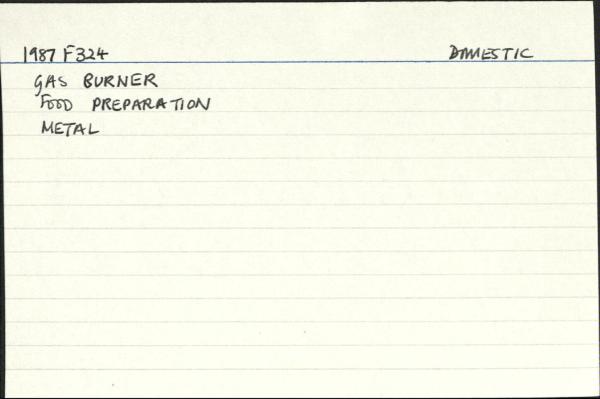 1987 F324 DOMESTIC
GAS BURNER
FOOD PREPARATION
METAL